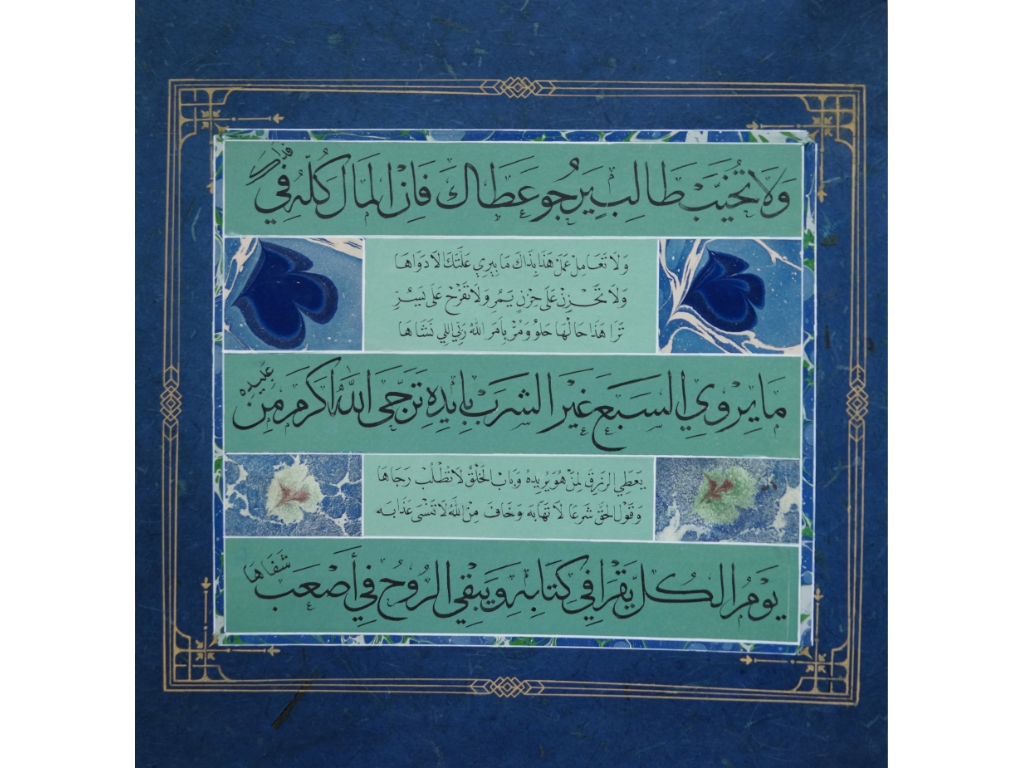 وَلَا تُخَيِّبْ طَالِبٍ يَرْجُو عَطَاكَ فَإِنْ الْمَالْ كُلُّهْ فِي فداك
وَلَا تَعَامِلْ عَمَلْ هَذَا بِذَاكَ مَا يِبْرِي عَلَّتَكْ لَا دَوَاهَا
وَلَا تَحْزِنْ عَلَى حِزْنٍ يَمُر وَلَا تَفْرَحْ عَلَى يَسُرْ
تَرَا هَذَا حَالْهَا حَلُوْ وَمُرْ بِأَمَرَ اللهُ رَبِّي اللي نَشَاهَا
مَا يِرْوِي السَبَعَ غَيْرَ الشَرَبْ بِايْدِهْ تَرَجَّى اللهْ أَكْرَمْ مِنْ عَبِيْدَهْ
يَعَطِي الرِزِقْ لِمَنْ هُوَ يَرِيْدِهْ وَبَابْ الخَلْقْ لَا تَطْلُبْ رَجَاهَا
وَقَوْلْ الحَقْ شَرَعَا لَا تَهَابَهْ وَخَافْ مِنْ اللهْ لَا تَنْسَى عَذَابَهْ
يَوْمُ الكَلْ يَقْرَا فِي كِتَابِهْ وَيَبْقِي الرُوحْ فِي أَصْعَبْ شَفَاهَا